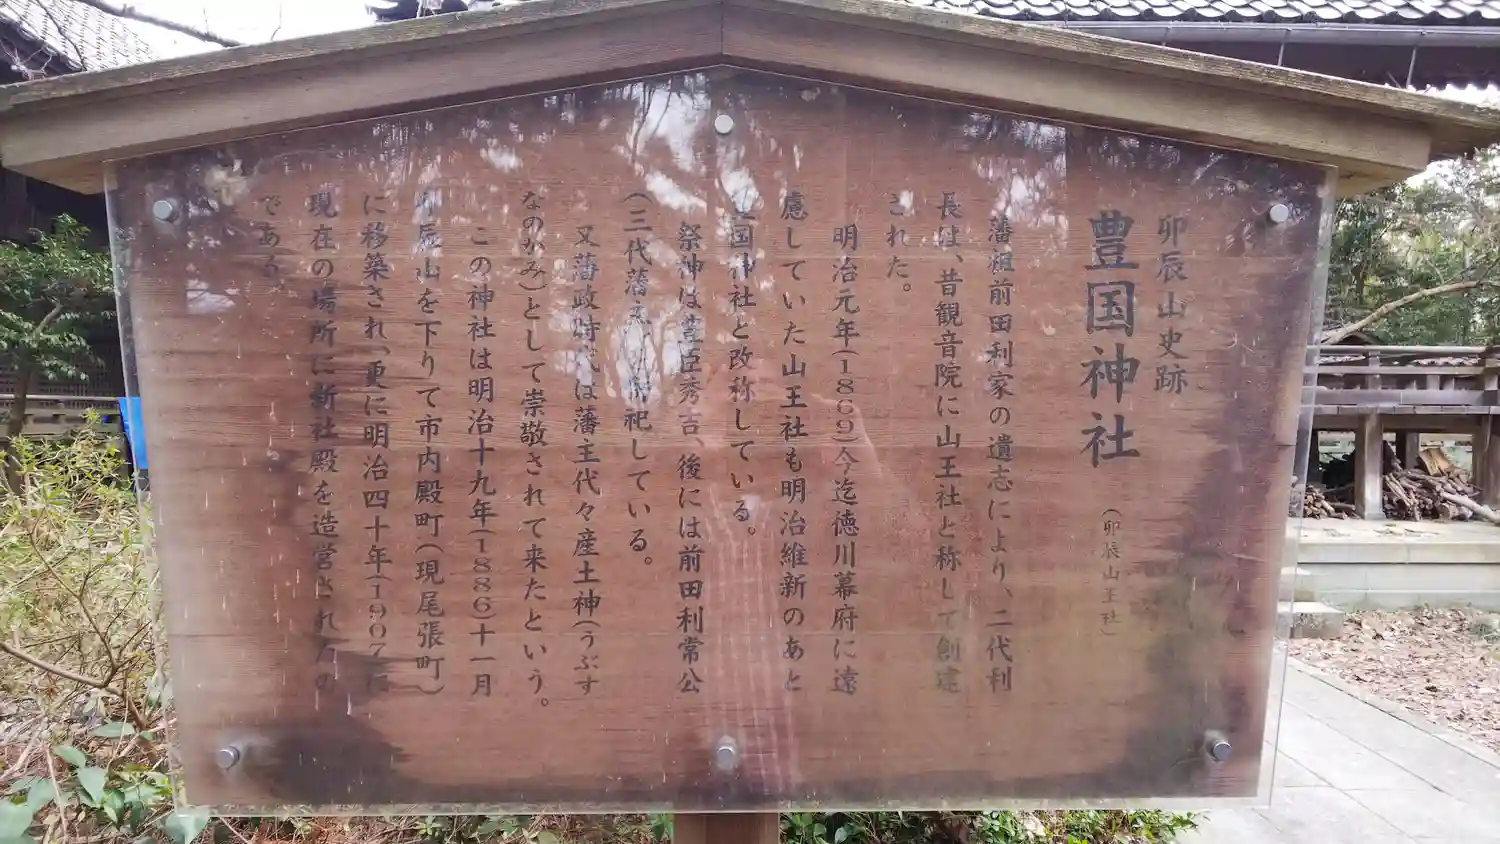 卯辰山史跡
豊国神社
(卯辰山王社)
藩祖前田利家の遺志により、二代利
長は、昔観音院に山王社と称して創建
された。
明治元年(1869)今迄徳川幕府に遠
慮していた山王社も明治維新のあと
国神社と改称している。
祭神は豊臣秀吉、後には前田利常公
(三代藩主)を併祀している。
又藩政時代は藩主代々産土神(うぶす
なのかみ)として崇敬されて来たという。
この神社は明治十九年(1886)十一月
卯辰山を下りて市内殿町(現尾張町)
に移築され、更に明治四十年(1907)に
現在の場所に新社殿を造営されたの
である